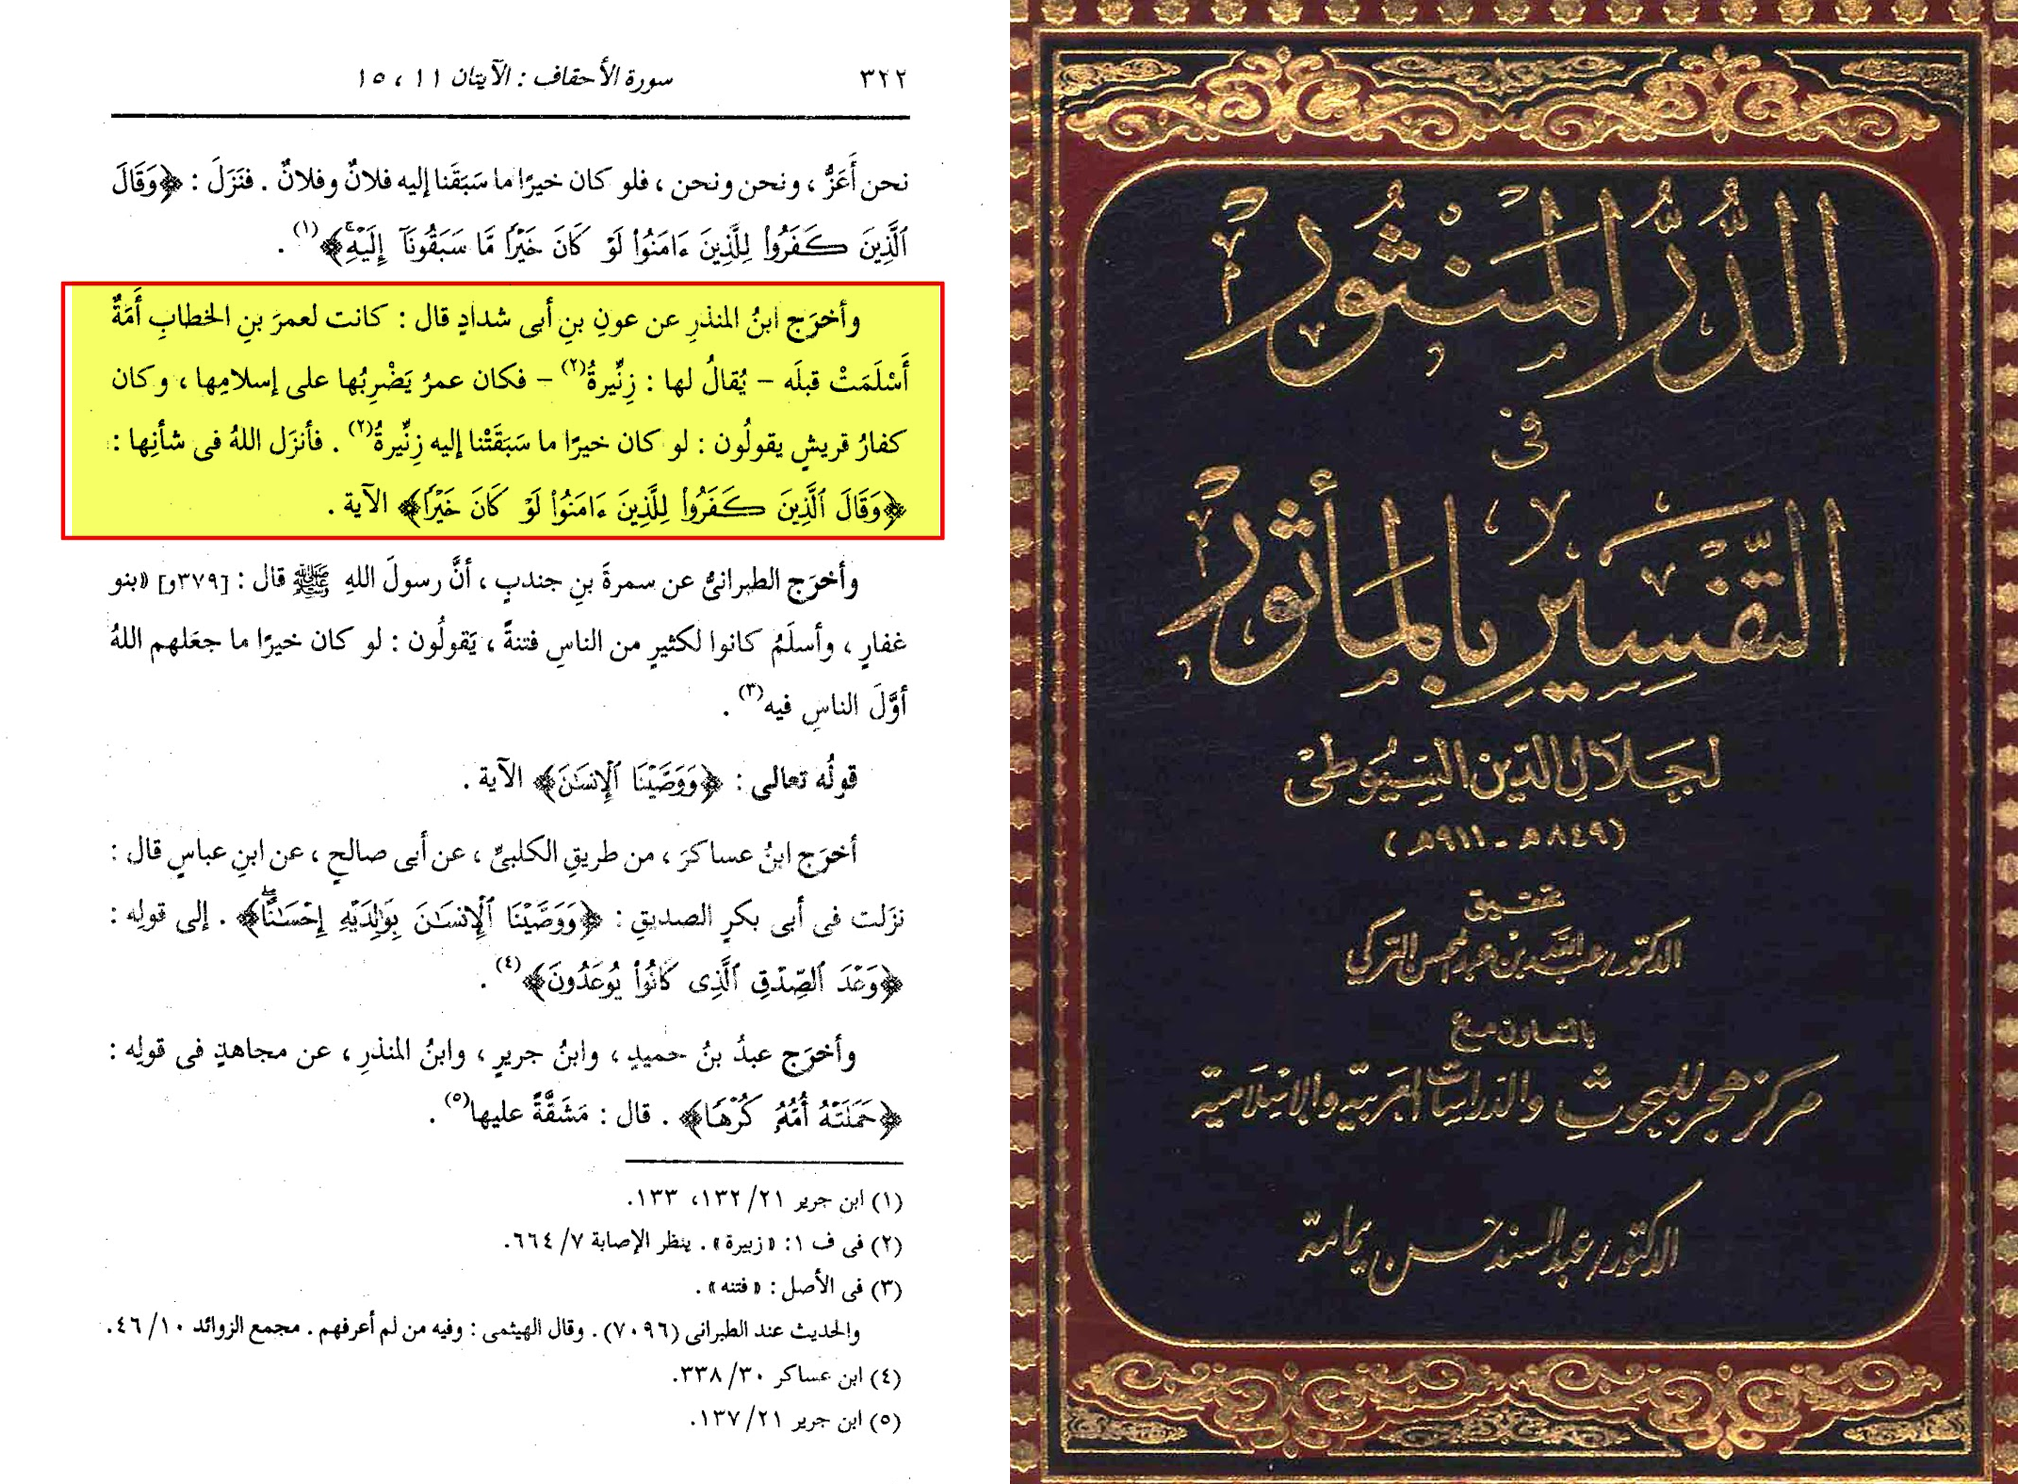 ٣٢٢ سورة الأحقاف : الآيتان ١١ ، ١٥
نحن أَعَزُّ ، ونحن ونحن ، فلو كان خيرًا ما سَبَقَنا إليه فلانٌ وفلانٌ . فنَزَلَ : ﴿وَقَالَ
ٱلَّذِينَ كَفَرُوا۟ لِلَّذِينَ ءَامَنُوا۟ لَوْ كَانَ خَيْرًا مَّا سَبَقُونَآ إِلَيْهِ﴾(١) .
وأخرَج ابنُ المنذرِ عن عونِ بنِ أبى شدادٍ قال : كانت لعمرَ بنِ الخطابِ أَمَةٌ
أَسْلَمَتْ قبلَه – يُقالُ لها : زِنِّيرةُ(٢) – فكان عمرُ يَضْرِبُها على إسلامِها ، وكان
كفارُ قريشٍ يقولُون : لو كان خيرًا ما سَبَقَتْنا إليه زِنِّيرةُ(٢) . فأنزَل اللهُ فى شأنِها :
﴿وَقَالَ ٱلَّذِينَ كَفَرُوا۟ لِلَّذِينَ ءَامَنُوا۟ لَوْ كَانَ خَيْرًا﴾ الآية .
وأخرَج الطبرانىُّ عن سمرةَ بنِ جندبٍ ، أنَّ رسولَ اللهِ ﷺ قال : [٣٧٩و] «بنو
غفارٍ ، وأسلَمُ كانوا لكثيرٍ من الناسِ فتنةً ، يَقولُون : لو كان خيرًا ما جعَلهم اللهُ
أوَّلَ الناسِ فيه(٣) .
قولُه تعالى : ﴿وَوَصَّيْنَا ٱلْإِنسَٰنَ﴾ الآية .
أخرَج ابنُ عساكرَ ، من طريقِ الكلبىِّ ، عن أبى صالحٍ ، عن ابنِ عباسٍ قال :
نزَلت فى أبى بكرٍ الصديقِ : ﴿وَوَصَّيْنَا ٱلْإِنسَٰنَ بِوَٰلِدَيْهِ إِحْسَٰنًا﴾ . إلى قولِه :
﴿وَعْدَ ٱلصِّدْقِ ٱلَّذِى كَانُوا۟ يُوعَدُونَ﴾(٤) .
وأخرَج عبدُ بنُ حميدٍ ، وابنُ جريرٍ ، وابنُ المنذرِ ، عن مجاهدٍ فى قولِه :
﴿حَمَلَتْهُ أُمُّهُۥ كُرْهًا﴾ . قال : مَشَقَّةً عليها(٥) .
(١) ابن جرير ٢١/ ١٣٢، ١٣٣.
(٢) فى ف ١: «زبيرة» . ينظر الإصابة ٧/ ٦٦٤.
(٣) فى الأصل : «فتنه» .
والحديث عند الطبرانى (٧٠٩٦) . وقال الهيثمى : وفيه من لم أعرفهم . مجمع الزوائد ١٠/ ٤٦.
(٤) ابن عساكر ٣٠/ ٣٣٨.
(٥) ابن جرير ٢١/ ١٣٧.
الدُّرُّ المَنْثُور
فى
التَّفْسِيرِ بِالمَأْثُور
لجَلَالِ الدِّين السِّيُوطِى
(٨٤٩هـ - ٩١١هـ)
تحقيق
الدكتور/ عبد الله بن عبد المحسن التركي
بالتعاون مع
مركز هجر للبحوث والدراسات العربية والإسلامية
الدكتور/ عبد السند حسن يمامة